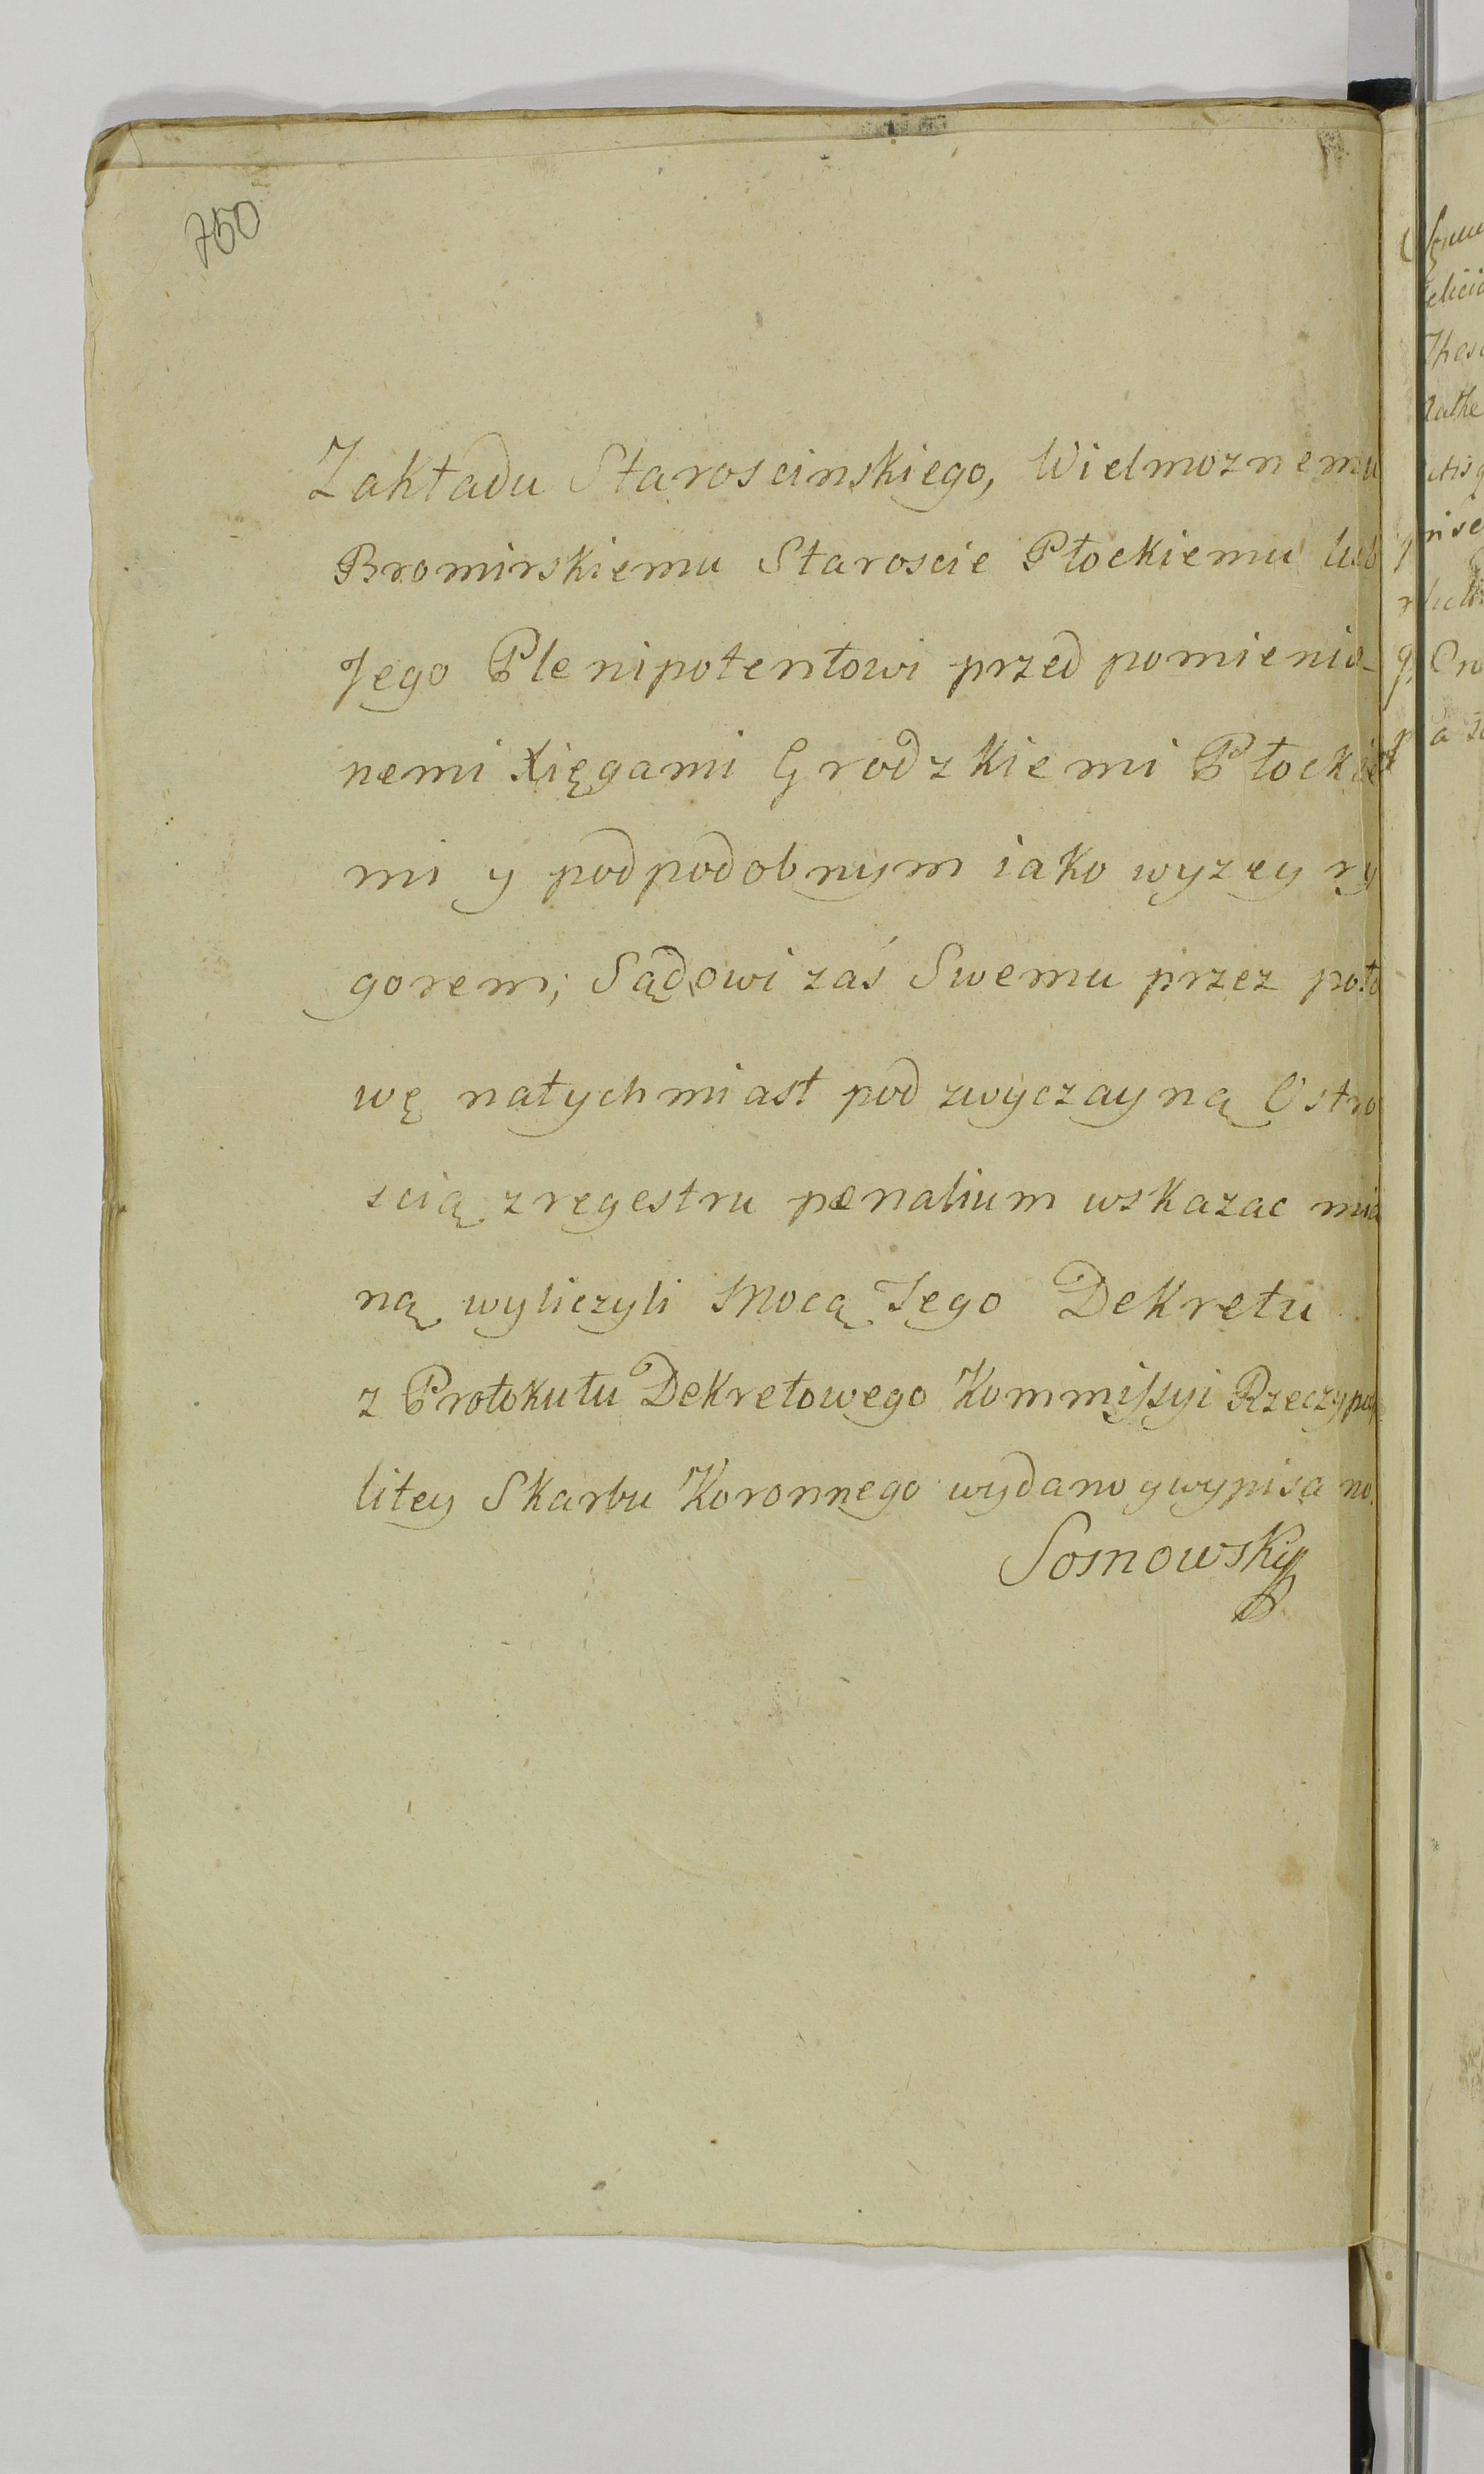 750
Zakładu Staroscinskiego, Wielmoznemu
Bromirskiemu Staroscie Płockiemu lub
Jego Plenipotentowi przed pomienio-
nemi Xięgami Grodzkiemi Płockie
mi y podpodobnym iako wyzey ry
gorem; Sądowi zaś Swemu przez poło
wę natychmiast pod zwyczayną Ostro
scią z regestru pœnalium wskazac mia
ną wyliczyli Mocą Tego Dekretu
z Protokułu Dekretowego Kommissyi Rzeczypospo
litey Skarbu Koronnego wydano y wypisano.
Sosnowsky